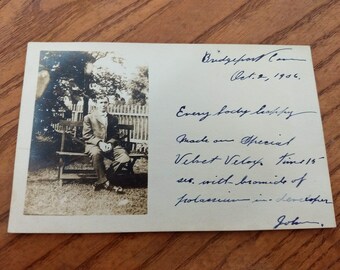 Bridgeport Conn
Oct. 2, 1906.
Every body happy
Made on Special
Velvet Velox. Time 15
sec. with bromide of
potassium in developer
John.